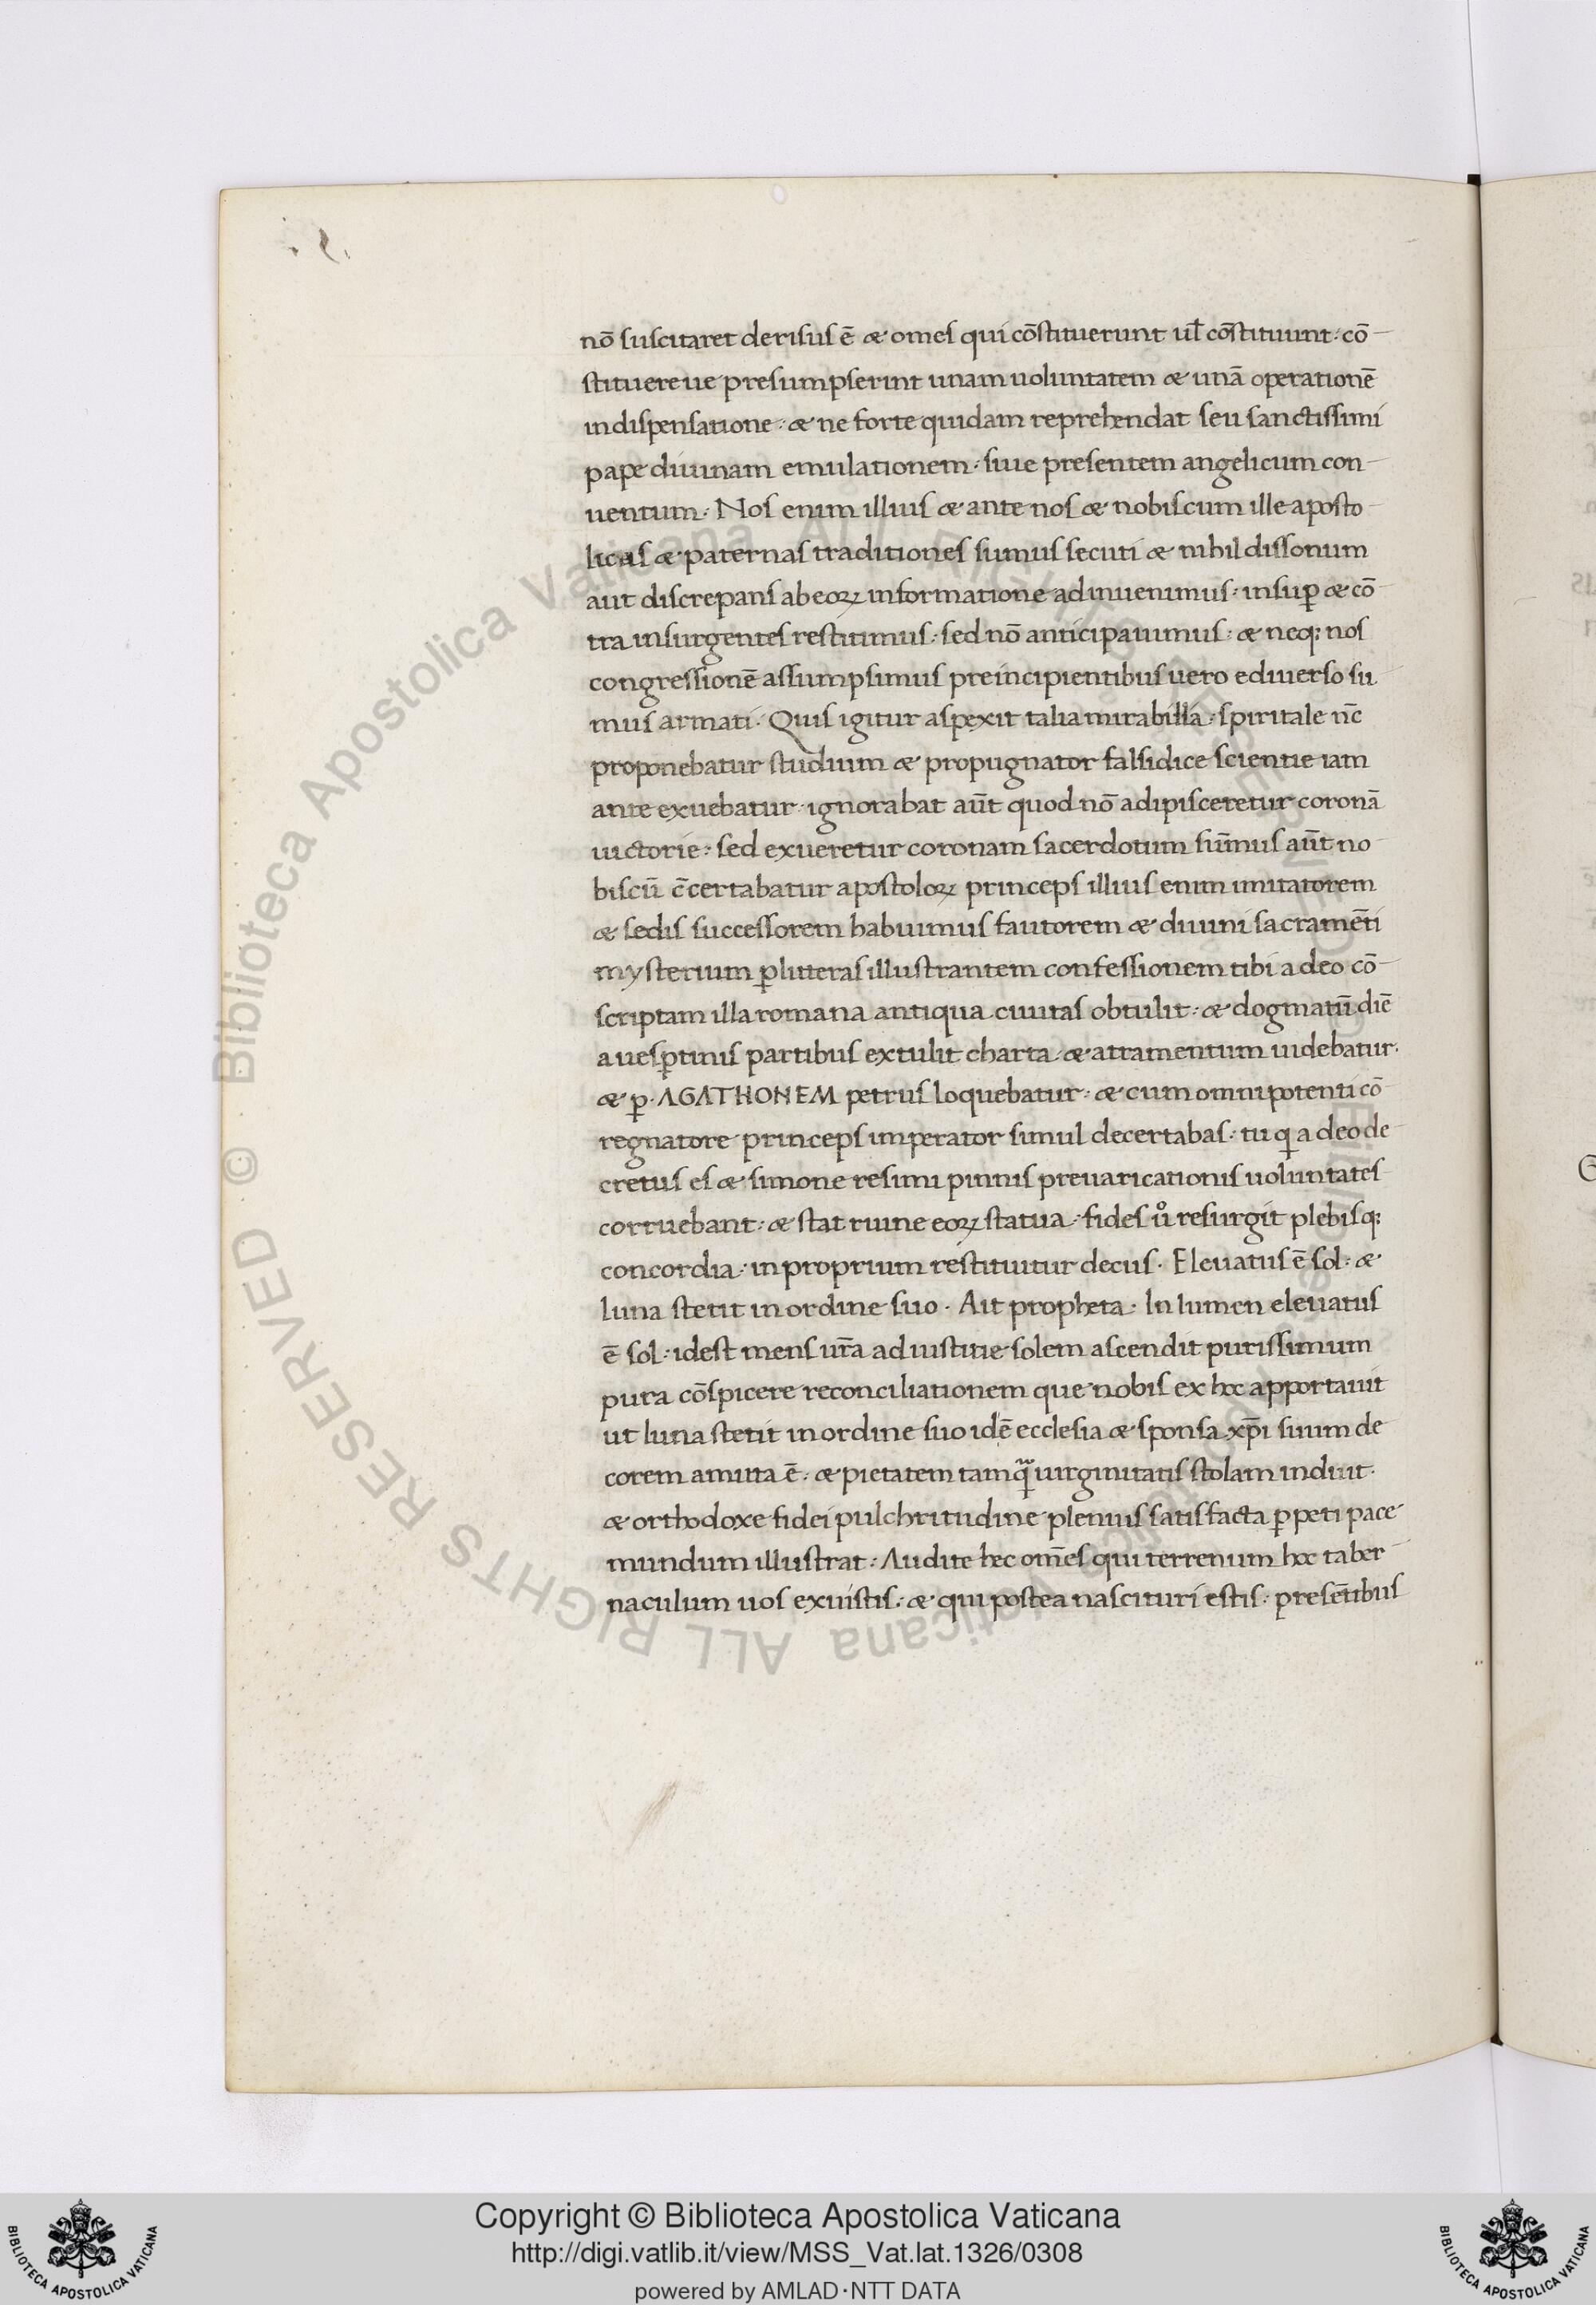 nō suscitaret derisus ē & om̄es qui cōstituerunt ul̄ cōstituunt· cō
stituereue presumpserint unam uoluntatem & unā operationē
in dispensatione· & ne forte quidam reprehendat seu sanctissimi
pape diuinam emulationem· siue presentem angelicum con
uentum· Nos enim illius & ante nos & nobiscum ille aposto
licas & paternas traditiones sumus secuti & nihil dissonum
aut discrepans ab eoꝝ informatione adinuenimus· insuꝑ & cō
tra insurgentes restitimus· sed nō anticipauimus· & neq; nos
congressionē assumpsimus preincipientibus uero ediuerso su
mus armati· Quis igitur aspexit talia mirabilia· spiritale nc̄
proponebatur studium & propugnator falsidice scientie iam
ante exuebatur· ignorabat aūt quod nō adipisceretur coronā
uictorie· sed exueretur coronam sacerdotum sum̄us aūt no
biscū c̄certabatur apostoloꝝ princeps illius enim imitatorem
& sedis successorem habuimus fautorem & diuini sacramēti
mysterium ꝑ litteras illustrantem confessionem tibi a deo cō
scriptam illa romana antiqua ciuitas obtulit· & dogmatū diē
a uesꝑtinis partibus extulit charta· & atramentum uidebatur·
& ꝑ· AGATHONEM petrus loquebatur· & cum omnipotenti cō
regnatore princeps imperator simul decertabas· tu qi a deo de
cretus es & simone resimi pinnis preuaricationis uoluntates
corruebant· & stat ruine eoꝝ statua· fides uͦ resurgit plebisq;
concordia· in proprium restituitur decus· Eleuatus ē sol· &
luna stetit in ordine suo· Ait propheta· In lumen eleuatus
ē sol· idest mens ur̄a ad iustitie solem ascendit purissimum
pura cōspicere reconciliationem que nobis ex hoc apportauit
ut luna stetit in ordine suo idē ecclesia & sponsa xp̄i suum de
corem amicta ē· & pietatem tamqᷓ uirginitatis stolam induit·
& orthodoxe fidei pulchritudine plenius satisfacta ꝑpeti pace
mundum illustrat· Audite hec om̄es qui terrenum hoc taber
naculum uos exuistis· & qui postea nascituri estis· presētibus
© Biblioteca Apostolica Vaticana ALL RIGHTS RESERVED
Copyright © Biblioteca Apostolica Vaticana
http://digi.vatlib.it/view/MSS_Vat.lat.1326/0308
powered by AMLAD·NTT DATA
BIBLIOTECA APOSTOLICA VATICANA
BIBLIOTECA APOSTOLICA VATICANA